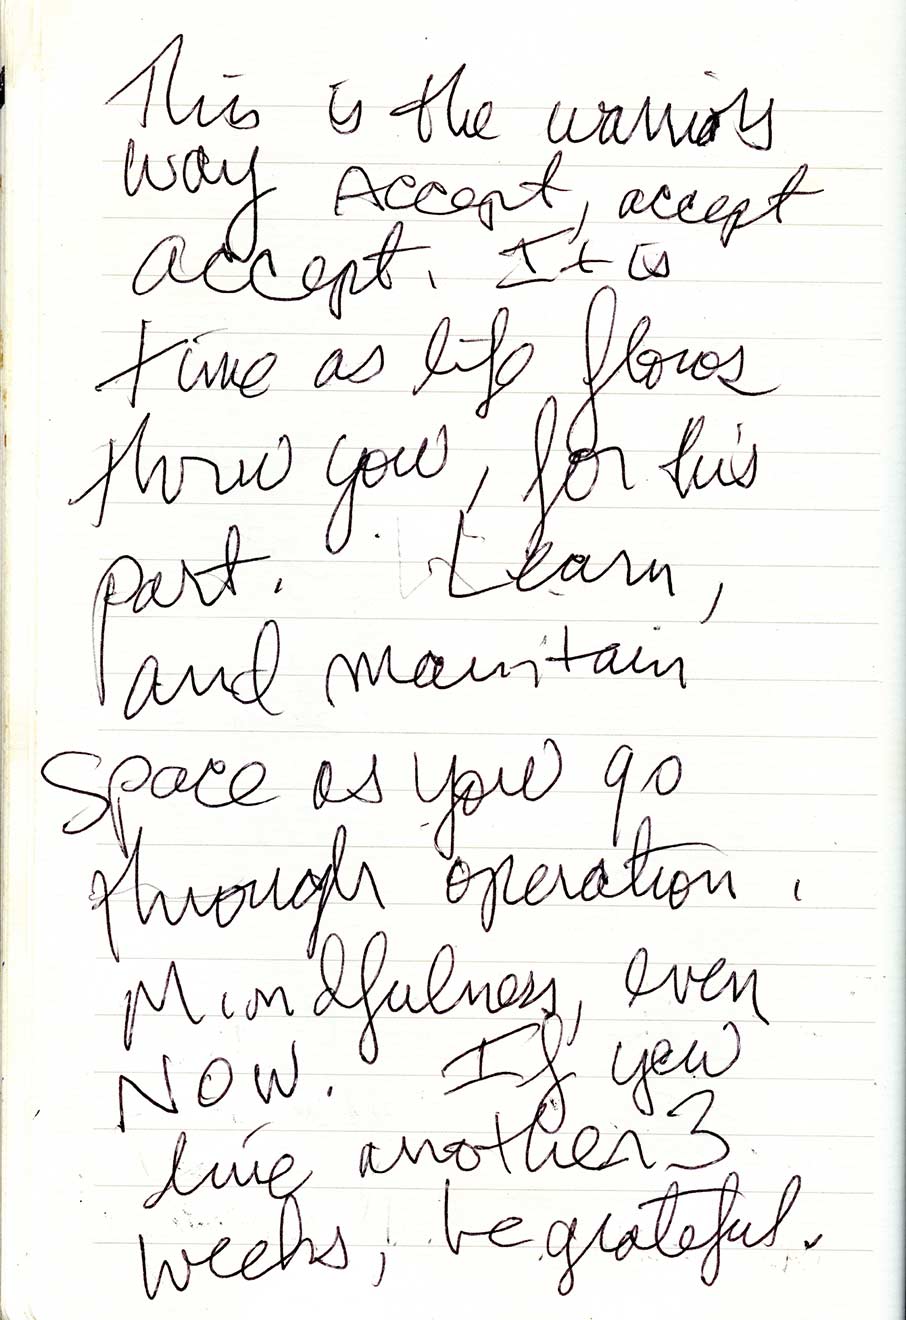 This is the warriors
way Accept, accept
accept. It is
time as life flows
thru you, for this
part. Learn,
and maintain
space as you go
through operation.
Mindfulness, even
NOW. If you
live another 3
weeks, be grateful.